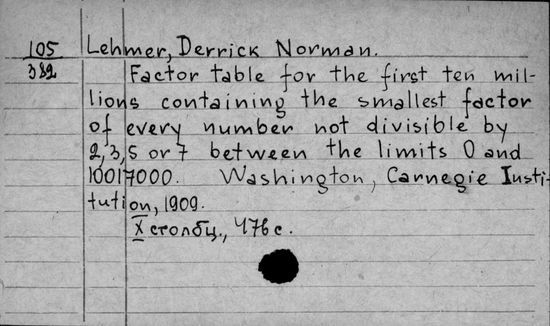 105 Lehmer, Derrick Norman.
382 Factor table for the first ten mil-
lions containing the smallest factor
of every number not divisible by
2,3,5 or 7 between the limits 0 and
10017000. Washington, Carnegie Insti-
tution, 1909.
X столбц., 476 с.